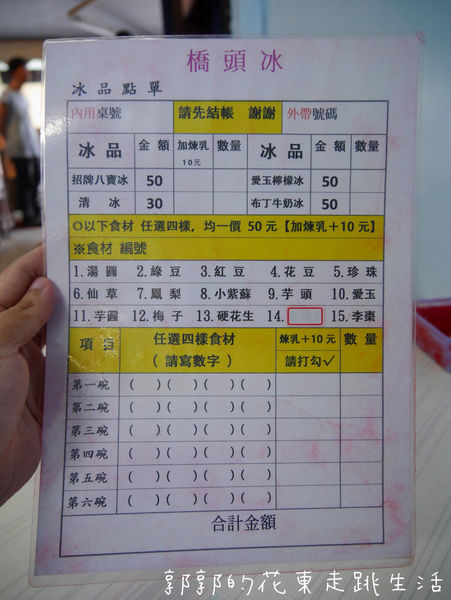 橋頭冰
冰品點單
內用桌號 請先結帳 謝謝 外帶號碼
冰品 金額 加煉乳10元 數量 冰品 金額 數量
招牌八寶冰 50 愛玉檸檬冰 50
清冰 30 布丁牛奶冰 50
◎以下食材 任選四樣，均一價 50 元【加煉乳＋10 元】
※食材 編號
1.湯圓 2.綠豆 3.紅豆 4.花豆 5.珍珠
6.仙草 7.鳳梨 8.小紫蘇 9.芋頭 10.愛玉
11.芋圓 12.梅子 13.硬花生 14. 15.李棗
項目 任選四樣食材 煉乳＋10元 數量
（請寫數字） 請打勾✓
第一碗 ( ) ( ) ( ) ( )
第二碗 ( ) ( ) ( ) ( )
第三碗 ( ) ( ) ( ) ( )
第四碗 ( ) ( ) ( ) ( )
第五碗 ( ) ( ) ( ) ( )
第六碗 ( ) ( ) ( ) ( )
合計金額
郭郭的花東走跳生活